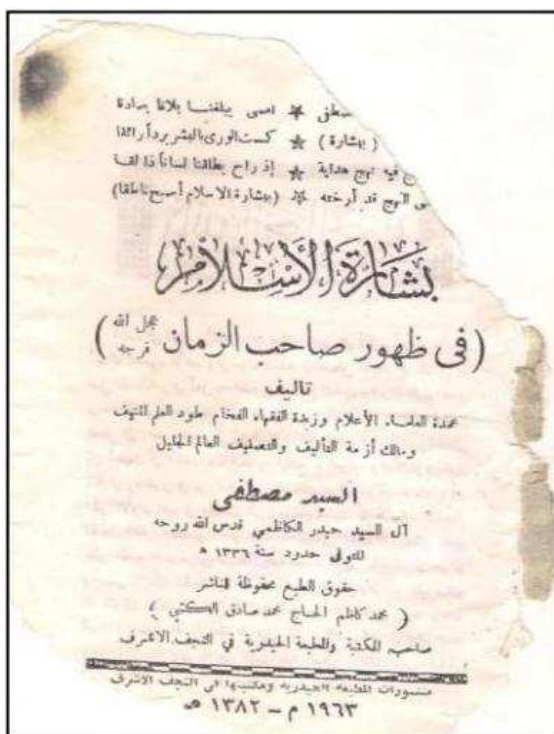 مصطفى * امسى يبلغنا بلاغا
(بشارة) * كست الورى بالبشر برداً رائقا
فيه نهج هداية * إذ راح يطلقنا لساناً
النهج قد أرخته * (بشارة الاسلام أصبح ناطقا)
بشارة الأسلام
(في ظهور صاحب الزمان عجل الله فرجه)
تاليف
عمدة العلماء الأعلام وزبدة الفقهاء الفخام طود العلم المنيف
ومالك أزمة التأليف والتصنيف العالم الجليل
السيد مصطفى
آل السيد حيدر الكاظمي قدس الله روحه
المتوفى حدود سنة ١٣٣٦ هـ
حقوق الطبع محفوظة للناشر
( محمد كاظم الحاج محمد صادق الكتبي )
صاحب المكتبة والمطبعة الحيدرية في النجف الاشرف
منشورات المطبعة الحيدرية ومكتبتها في النجف الاشرف
١٩٦٣ م - ١٣٨٢ هـ